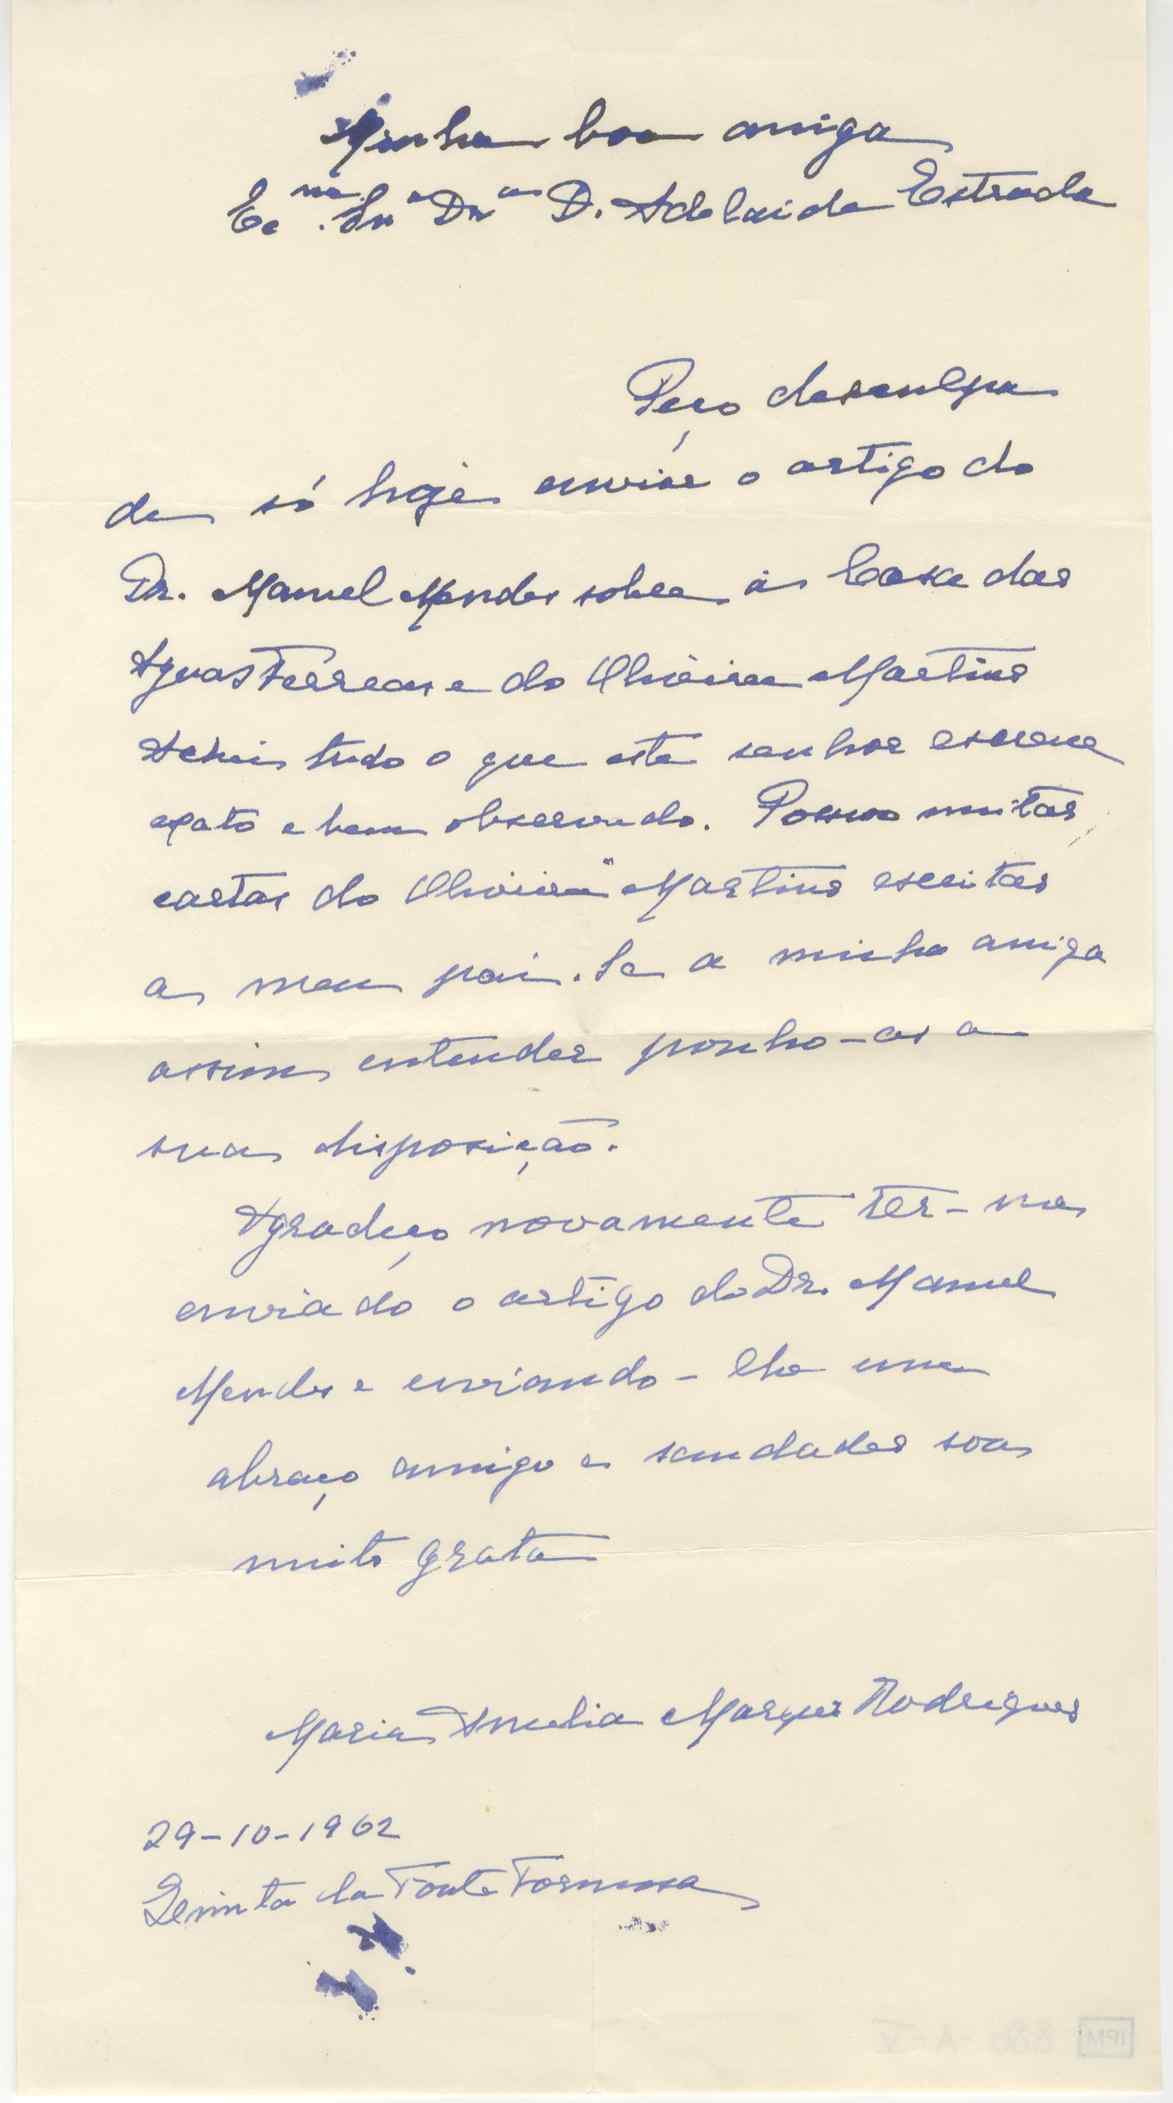 Minha boa amiga
Ex.ma Snr.a Dr.a D. Adelaide Estrada
Peço desculpa
de só hoje enviar o artigo do
Dr. Manuel Mendes sobre a Casa das
Aguas Ferreas e do Oliveira Martins
Achei tudo o que este senhor escreve
exato e bem observado. Possuo muitas
cartas do Oliveira Martins escritas
a meu pai. Se a minha amiga
assim entender ponho-as a
sua disposição.
Agradeço novamente ter-me
enviado o artigo do Dr. Manuel
Mendes e enviando-lhe um
abraço amigo e saudades sou
muito grata
Maria Amelia Marques Rodrigues
29-10-1962
Quinta da Fonte Formosa